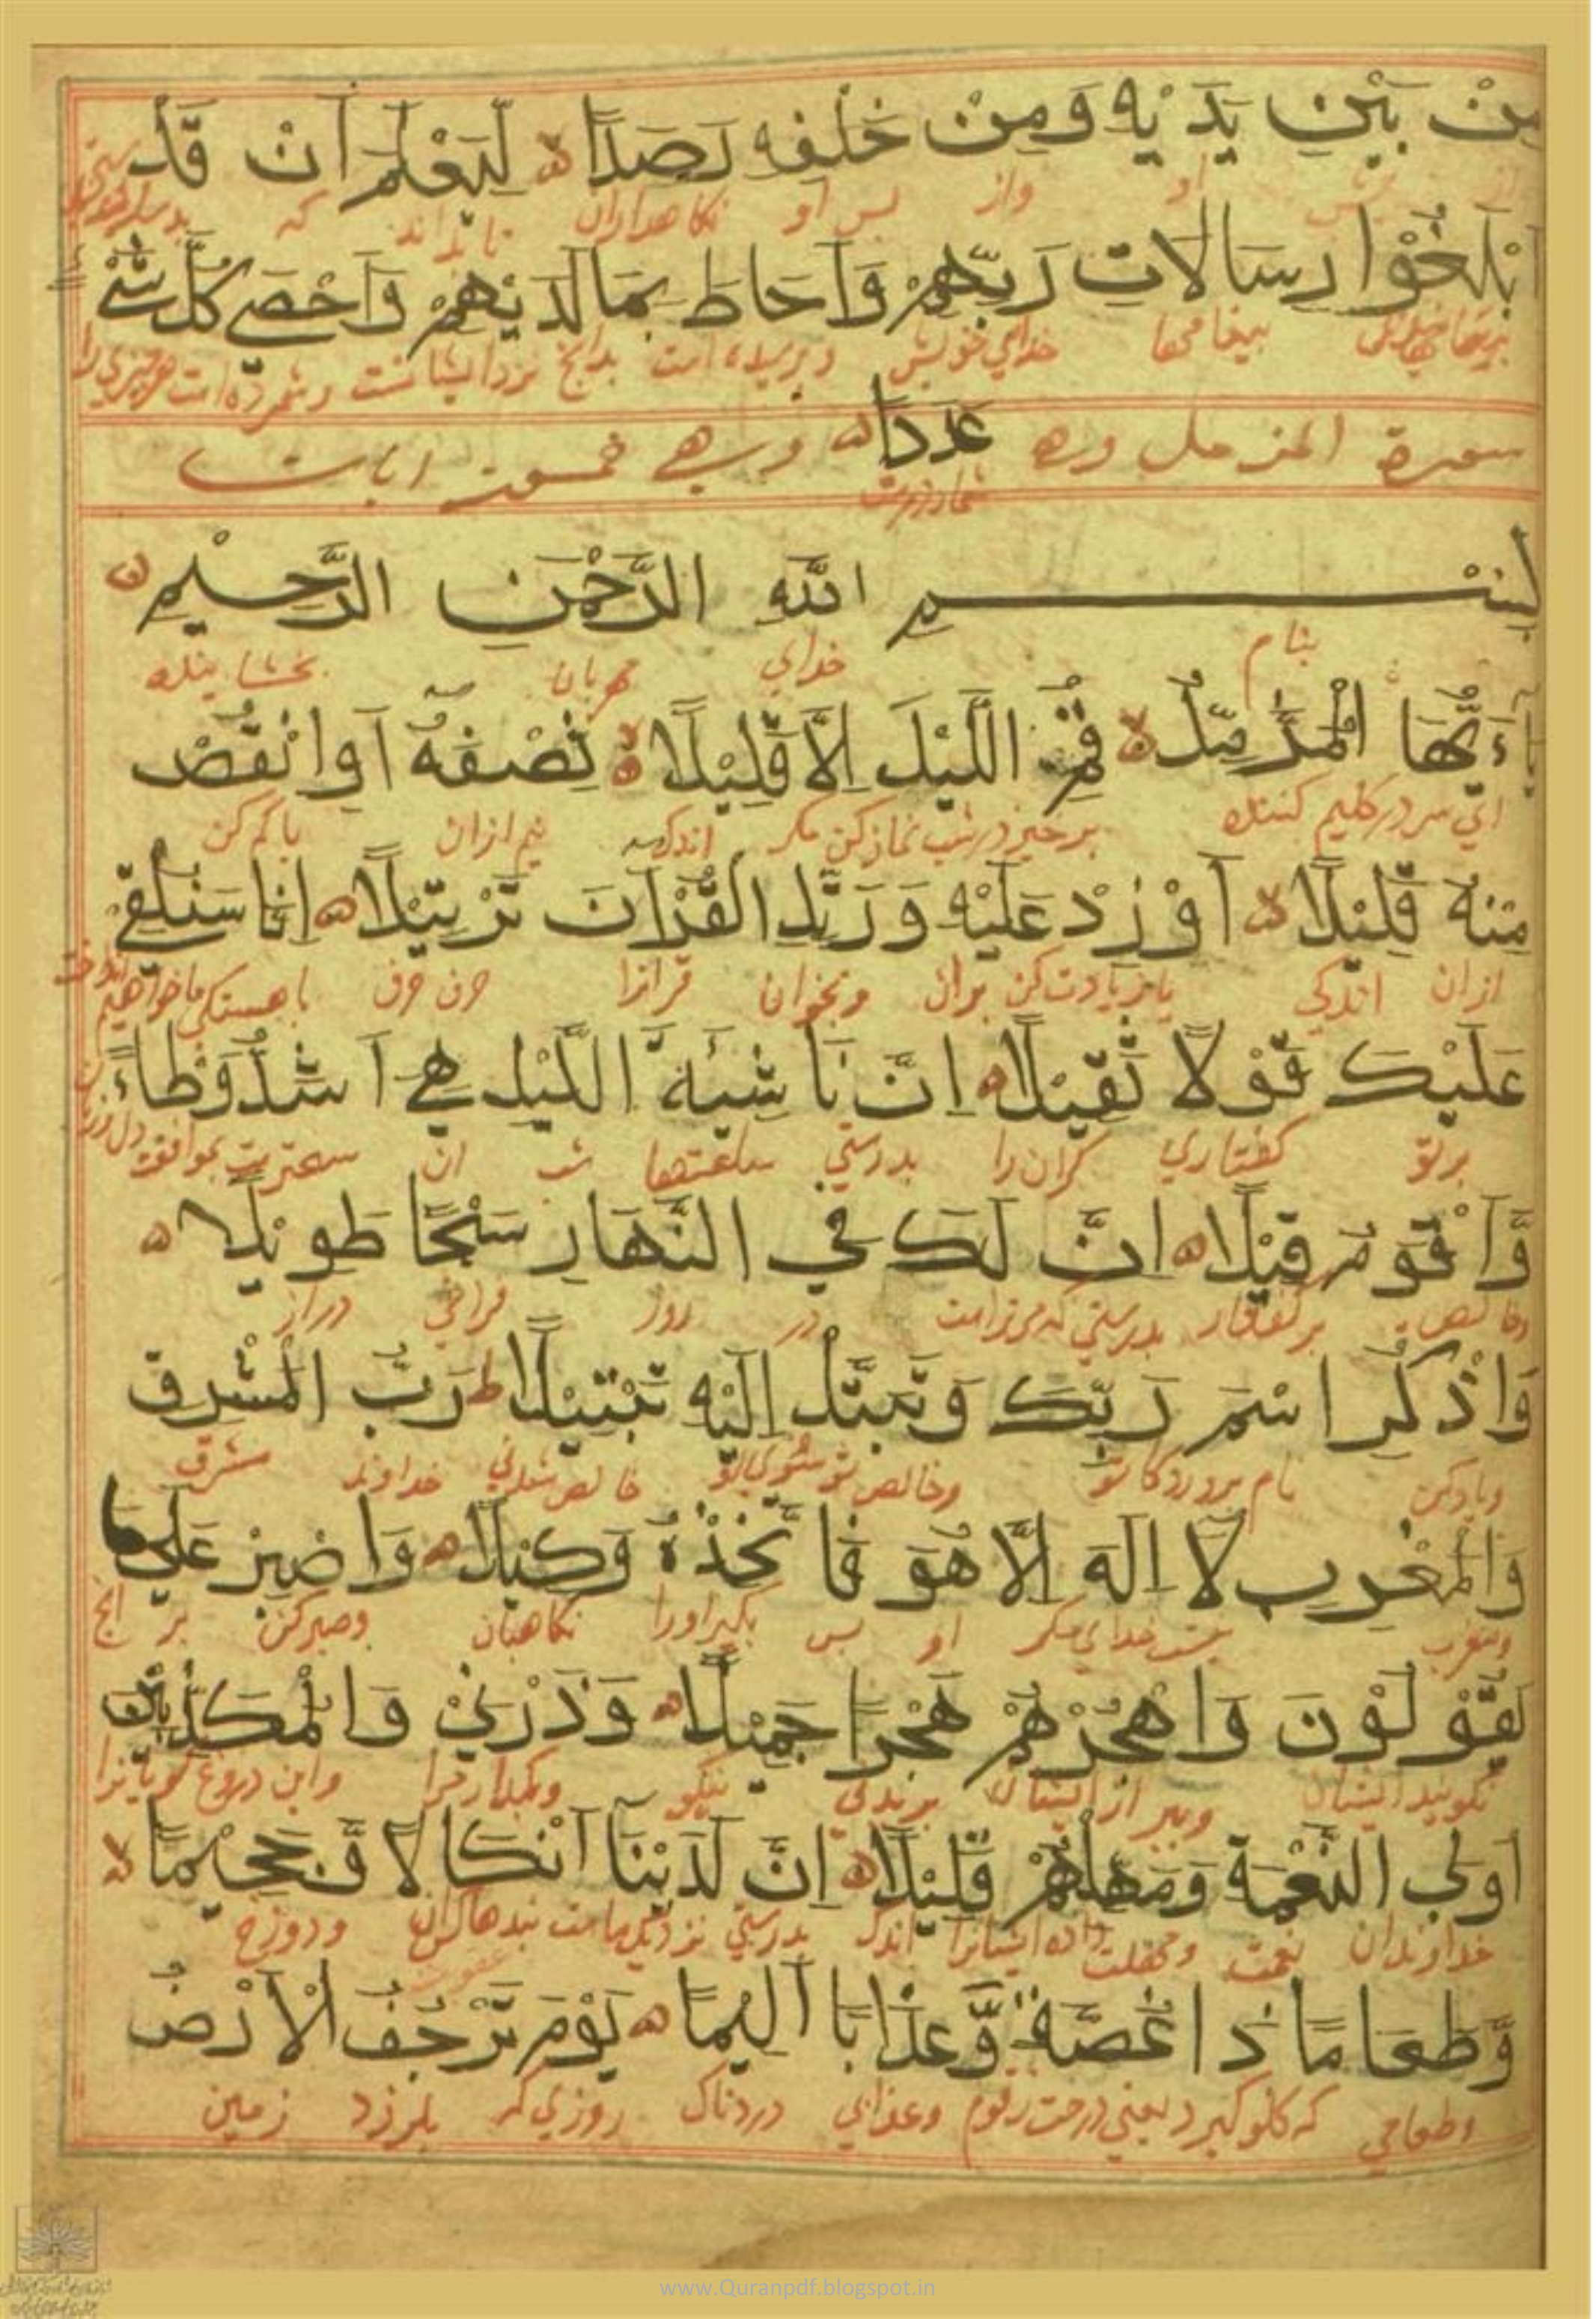 مِنْ بَيْنِ يَدَيْهِ وَمِنْ خَلْفِهِ رَصَدًا لِيَعْلَمَ اَنْ قَدْ
از پیش او واز پس او نکاهدارانی تا بداند که
اَبْلَغُوْا رِسَالَاتِ رَبِّهِمْ وَاَحَاطَ بِمَا لَدَيْهِمْ وَاَحْصٰے كُلَّ شَيْءٍ
پیغامها خدای خویش بدانچ نزد ایشانست وشمرده است هر چیزی را
سورة المزمل وهے عَدَدًا وهے خمسون ایات
بِسْمِ اللّٰهِ الرَّحْمٰنِ الرَّحِيْمِ
بنام خدای مهربان بخشاینده
يَآءَيُّهَا الْمُزَّمِّلُ قُمِ اللَّيْلَ اِلَّا قَلِيْلًا نِصْفَهُ اَوِ انْقُصْ
ای سر در کلیم کننده برخیز در شب نماز کن مکر اندک نیم ازان یا کم کن
مِنْهُ قَلِيْلًا اَوْ زِدْ عَلَيْهِ وَرَتِّلِ الْقُرْاٰنَ تَرْتِيْلًا اِنَّا سَنُلْقِيْ
ازان اندکی یا زیادت کن بران وبخوان قرانرا حرف حرف باهستکی ما خواهیم
عَلَيْكَ قَوْلًا ثَقِيْلًا اِنَّ نَاشِئَةَ اللَّيْلِ هِيَ اَشَدُّ وَطْاءً
برتو کفتاری کران را بدرستی ساعتها شب ان سختر بموافقت
وَّاَقْوَمُ قِيْلًا اِنَّ لَكَ فِي النَّهَارِ سَبْحًا طَوِيْلًا
بدرستی که مرتراست در روز فراخی دراز
وَاذْكُرِ اسْمَ رَبِّكَ وَتَبَتَّلْ اِلَيْهِ تَبْتِيْلًا ط رَبُّ الْمَشْرِقِ
ویاد کن نام پروردکار تو خالص شدنی خداوند مشرق
وَالْمَغْرِبِ لَا اِلٰهَ اِلَّا هُوَ فَاتَّخِذْهُ وَكِيْلًا وَاصْبِرْ عَلٰى مَا
ومغرب نیست خدای مکر او پس بکیر اورا نکاهبان وصبر کن بر انچ
يَقُوْلُوْنَ وَاهْجُرْهُمْ هَجْرًا جَمِيْلًا وَذَرْنِيْ وَالْمُكَذِّبِيْنَ
نکویند ایشان وببر از ایشان بریدنی نیکو وبکذار مرا واین دروغ کویانرا
اُولِي النَّعْمَةِ وَمَهِّلْهُمْ قَلِيْلًا اِنَّ لَدَيْنَا اَنْكَالًا وَّجَحِيْمًا
خداوندان نعمت ومهلت ده ایشانرا اندک بدرستی نزدیک ماست بندهاء کران ودوزخ
وَّطَعَامًا ذَا غُصَّةٍ وَّعَذَابًا اَلِيْمًا يَوْمَ تَرْجُفُ الْاَرْضُ
وطعامی که کلو کیرد یعنی درخت زقوم وعذابی دردناک روزی که بلرزد زمین
www.Quranpdf.blogspot.in